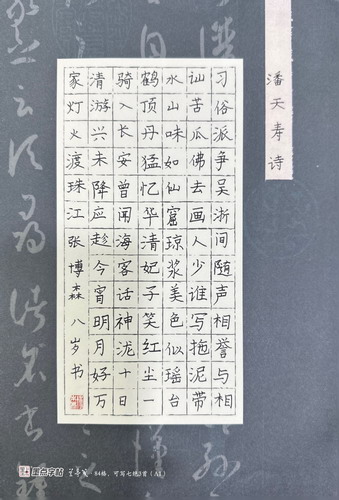 潘天寿诗
习俗派争吴浙间随声相誉与相
讪苦瓜佛去画人少谁写拖泥带
水山味如仙窟琼浆美色似瑶台
鹤顶丹猛忆华清妃子笑红尘一
骑入长安曾闻海客话神泷十日
清游兴未降应趁今宵明月好万
家灯火渡珠江张博森八岁书
墨点字帖 84格，可写七绝3首（A3）